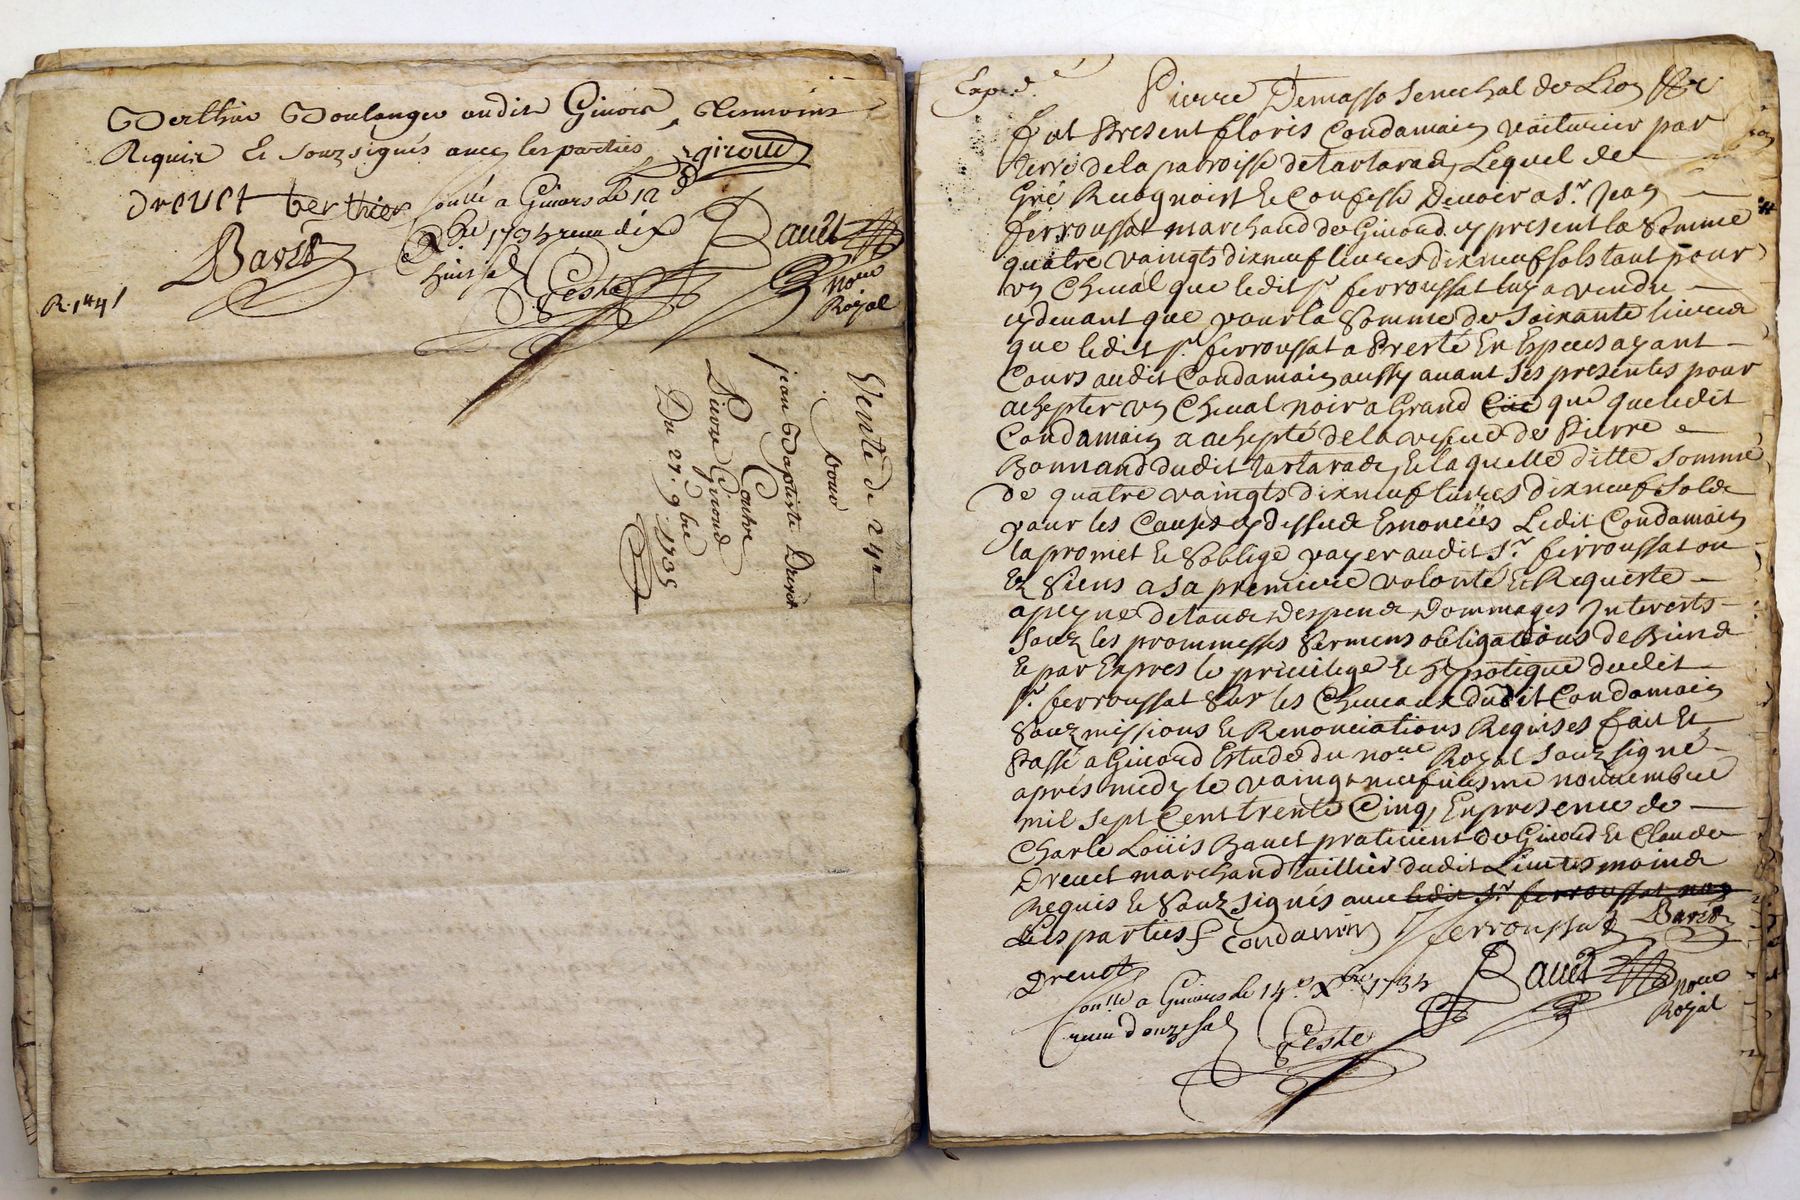 Berthier Boulanger audit Givors, Tesmoins
Requis Et souzsignés avec les parties, girolle
drevet berthier
Bavet
Conllé a Givors le 12e
Xbre 1735 receu dix
huit sol
Teste
Bavet
nore
Royal
R. 144
Vente de 24 #
pour
jean Baptiste Drevet
Contre
Pierre Girond
Du 27. 9bre 1735
Exped.é
Pierre Demasso Senechal de Lion &c
fut Present floris Condamain voiturier par
terre de la parroisse de tartaras, Lequel de
Gré Recognoist Et Confesse Devoir a Sr. Jean
ferroussat marchand de Givord cy present la Somme
quatre vaingts dixneuf livres dixneuf sols tant pour
un Cheval que ledit Sr. ferroussat luy a vendu
cydevant que pour la Somme de Soixante livres
que ledit Sr. ferroussat a Presté En Especes ayant
Cours audit Condamain aussy avant Ses presentes pour
achepter un Cheval noir a Grand que que ledit
Condamain a achepté de la vefue de Pierre
Bonnand dudit tartaras, Et laquelle ditte Somme
de quatre vaingts dixneuf livres dixneuf Sols
pour les Causes cy dessus Enoncées Ledit Condamain
la promet Et S'oblige payer audit Sr. ferroussat ou
Es Siens a sa premiere volonté Et Requeste
a peyne de tous Despens Dommages Interests
Souz les prommesses Sermens obligations de Biens
Et par Expres le privilege Et hypotique dudit
Sr. ferroussat Sur les Chevaux dudit Condamain
Souzmissions Et Renonciations Requises fait Et
Passé a Givord Estude du nore. Royal Souzsigné
aprés midy le vaingt neufviesme novembre
mil Sept Cent trente Cinq, En presence de
Charle Loüis Bavet praticient de Givord Et Claude
Drevet marchand tuillier dudit Lieu tesmoins
Requis Et Souzsignés avec ledit Sr. ferroussat non
Les parties Condamin ferroussat Bavet
Drevet
Bavet nore
Royal
Conllé a Givors le 14e. Xbre 1735
receu douze sol
Teste